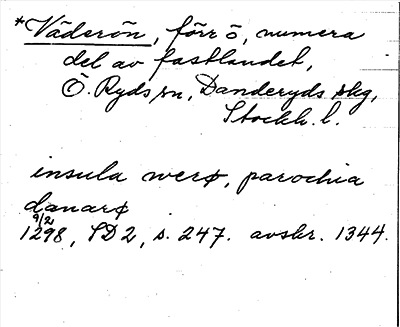 *Väderön, förr ö, numera
del av fastlandet,
Ö. Ryds sn, Danderyds skg,
Stockh. l.
insula werø, parochia
danarø
9/2
1298, SD 2, s. 247. avskr. 1344.